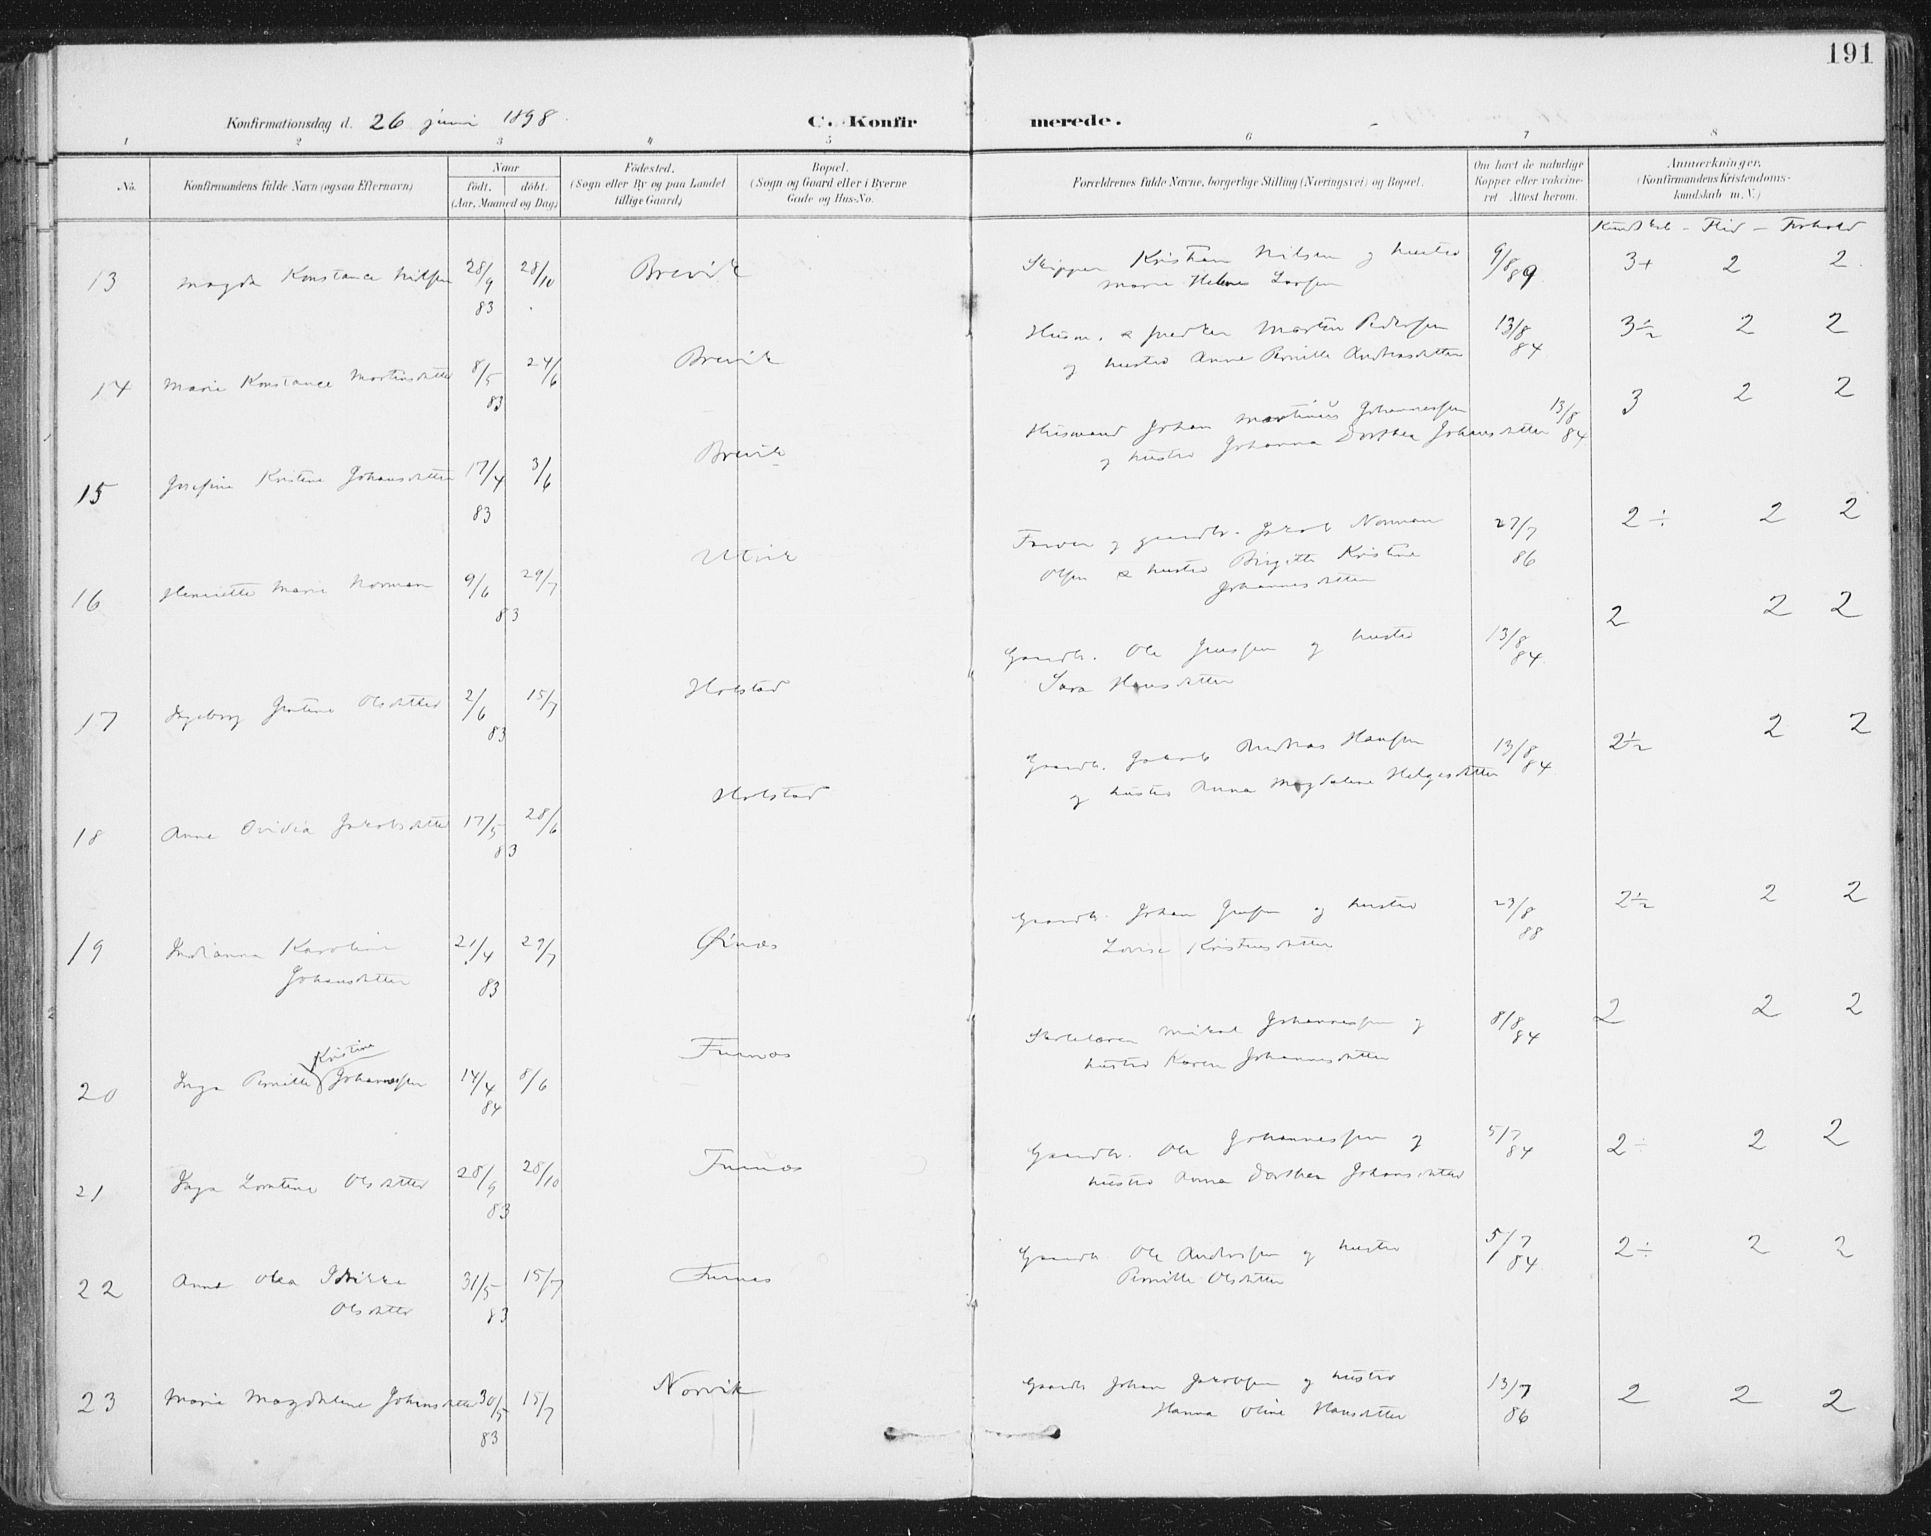 191
Konfirmationsdag d. 26 juni 1898.
C. Konfirmerede.
1 2 3 4 5 6 7 8
No.
Konfirmandens fulde Navn (ogsaa Efternavn)
Naar
födt. döbt.
(Aar, Maaned og Dag.)
Födested.
(Sogn eller By og paa Landet
tillige Gaard.)
Bopæl.
(Sogn og Gaard eller i Byerne
Gade og Hus-No.
Forældrenes fulde Navne, borgerlige Stilling (Næringsvei) og Bopæl.
Om havt de naturlige
Kopper eller vakcine-
ret Attest herom.
Anmærkninger.
(Konfirmandens Kristendoms-
kundskab m. V.)
Kundskab - Flid - Forhold
13 Magda Konstance Nilsen 28/9 83 28/10 Brevik
Skipper Kristian Nilsen og hustro 9/8 89 3+ 2 2
Marie Helene Larsen
14 Marie Konstance Martinsdatter 8/5 83 24/6 Brevik
Husm. & snedker Martin Pedersen 13/8 84 3½ 2 2
og hustro Anne Pernille Andreasdatter
15 Josefine Kristine Johansdatter 17/4 83 3/6 Brevik
Husmand Johan Martinus Johannessen 13/8 84 3 2 2
og hustro Johanna Dorthea Johansdatter
16 Henriette Marie Norman 9/6 83 29/7 Utvik
og gaardbr. Jakob Norman 27/7 86 2÷ 2 2
Olsen & hustro Birgitte Kristine
Johannesdatter
17 Ingeborg Olsdatter 2/6 83 15/7 Holstad
Gaardbr. Ole Jensen og hustro 13/8 84 2 2 2
Sara Hansdatter
18 Anne Ovidia Jakobsdatter 17/5 83 28/6 Holstad
Gaardb. Jakob Andreas Hansen 13/8 84 2½ 2 2
og hustro Anna Magdalene Helgesdatter
19 Indianna Karoline 21/4 83 29/7 Øinæs
Johansdatter
Gaardb. Johan Jensen og hustro 23/8 88 2½ 2 2
Lovise Kristensdatter
20 Inga Pernille Kristine Johannessen 14/4 84 8/6 Furnæs
Skolelærer Mikal Johannessen og 8/8 84 2 2 2
hustro Karen Johannesdatter
21 Inga Lorntine Olsdatter 28/9 83 28/10 Furnæs
Gaardbr. Ole Johannessen og 5/7 84 2÷ 2 2
hustro Anna Dorthea Johansdatter
22 Anne Olea Olsdatter 31/5 83 15/7 Furnes
Gaardb Ole Andersen og hustro 5/7 84 2÷ 2 2
Pernille Olsdatter
23 Marie Magdalene Johansdatter 30/5 83 15/7 Norvik
Gaardb Johan Jakobsen og hustro 13/7 86 2 2 2
Hanna Oline Hansdatter